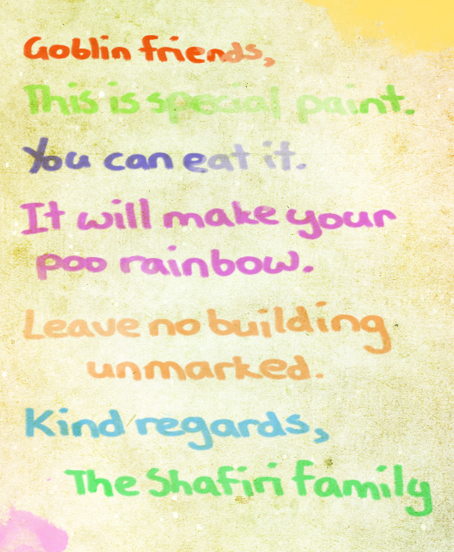 Goblin friends,
This is special paint.
You can eat it.
It will make your
poo rainbow.
Leave no building
unmarked.
Kind regards,
The Shafiri family